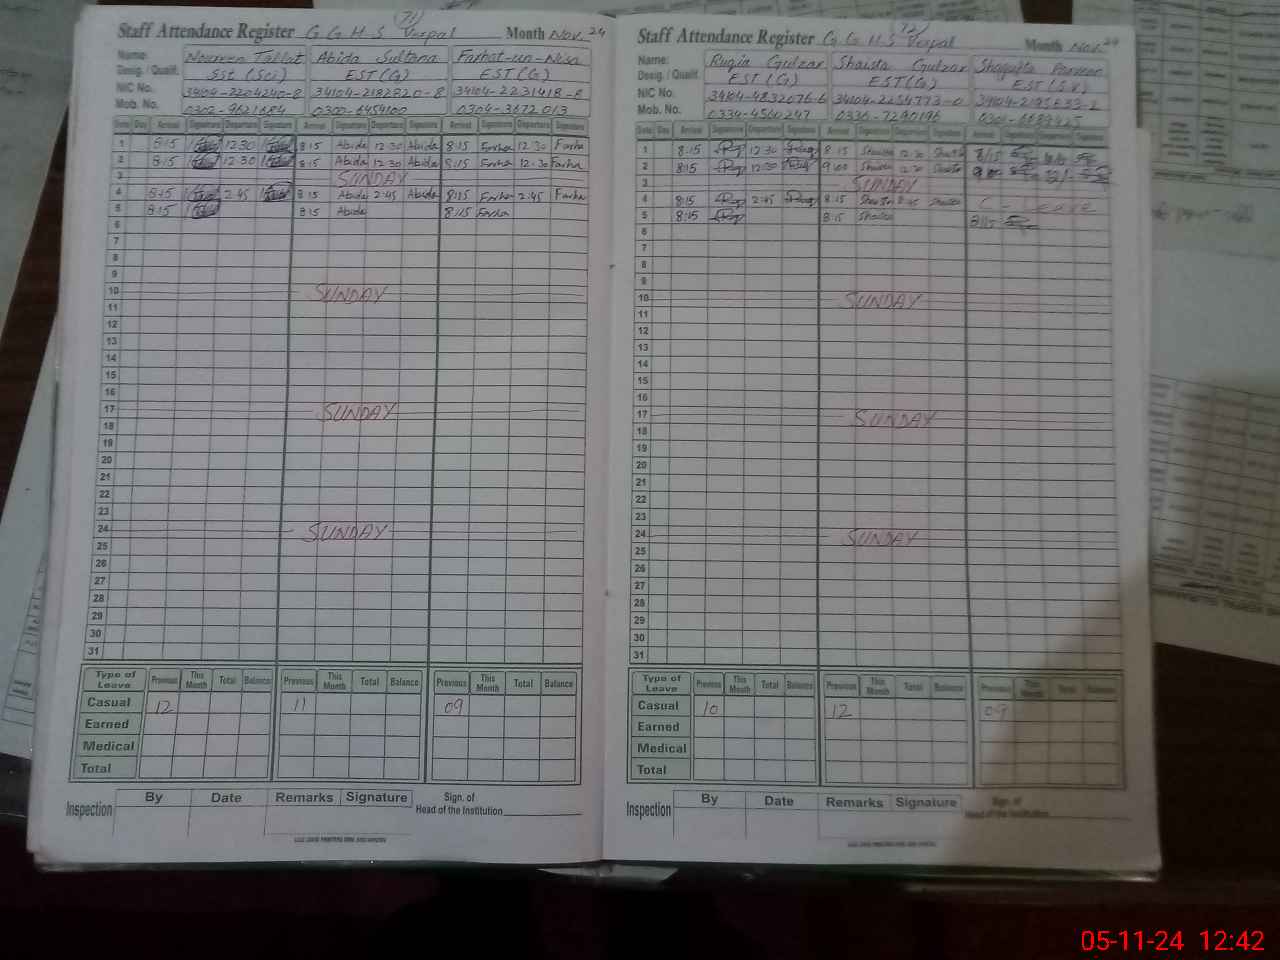 (71)
Staff Attendance Register G G H S Verpal Month Nov 24
Name: Noureen Tallat Abida Sultana Farhat-un-Nisa
Desig. / Qualif. SSt (Sci) EST (G) EST (G)
NIC No. 34104-2204240-8 34104-2182820-8 34104-2231418-8
Mob. No. 0302-9621684 0300-6459100 0304-3672013
Date Day Arrival Signature Departure Signature Arrival Signature Departure Signature Arrival Signature Departure Signature
1 8:15 12 30 8 15 Abida 12 30 Abida 8:15 Farha 12 30 Farha
2 8:15 12 30 8:15 Abida 12 30 Abida 8:15 Farha 12:30 Farha
3 SUNDAY
4 8:15 2:45 8:15 Abida 2:45 Abida 8:15 Farha 2:45 Farha
5 8:15 8:15 Abida 8:15 Farha
6
7
8
9
10 SUNDAY
11
12
13
14
15
16
17 SUNDAY
18
19
20
21
22
23
24 SUNDAY
25
26
27
28
29
30
31
Type of Leave Previous This Month Total Balance Previous This Month Total Balance Previous This Month Total Balance
Casual 12 11 09
Earned
Medical
Total
Inspection By Date Remarks Signature Sign. of Head of the Institution
(72)
Staff Attendance Register G G H S Verpal Month Nov 24
Name: Ruqia Gulzar Shaista Gulzar Shagufta Parveen
Desig. / Qualif. EST (G) EST (G) EST (S.V)
NIC No. 34104-4832076-6 34104-2254773-0 34104-2195633-2
Mob. No. 0334-4560247 0336-7290196 0301-6689425
Date Day Arrival Signature Departure Signature Arrival Signature Departure Signature Arrival Signature Departure Signature
1 8:15 12 30 8 15 Shaista 12 30 Shaista 8:15
2 8:15 12:30 9:00 Shaista 12 30 Shaista 9:00
3 SUNDAY
4 8:15 2:45 8:15 Shaista 2:45 Shaista C - Leave
5 8:15 8:15 Shaista 8:15
6
7
8
9
10 SUNDAY
11
12
13
14
15
16
17 SUNDAY
18
19
20
21
22
23
24 SUNDAY
25
26
27
28
29
30
31
Type of Leave Previous This Month Total Balance Previous This Month Total Balance Previous This Month Total Balance
Casual 10 12 09
Earned
Medical
Total
Inspection By Date Remarks Signature Sign. of Head of the Institution
05-11-24 12:42